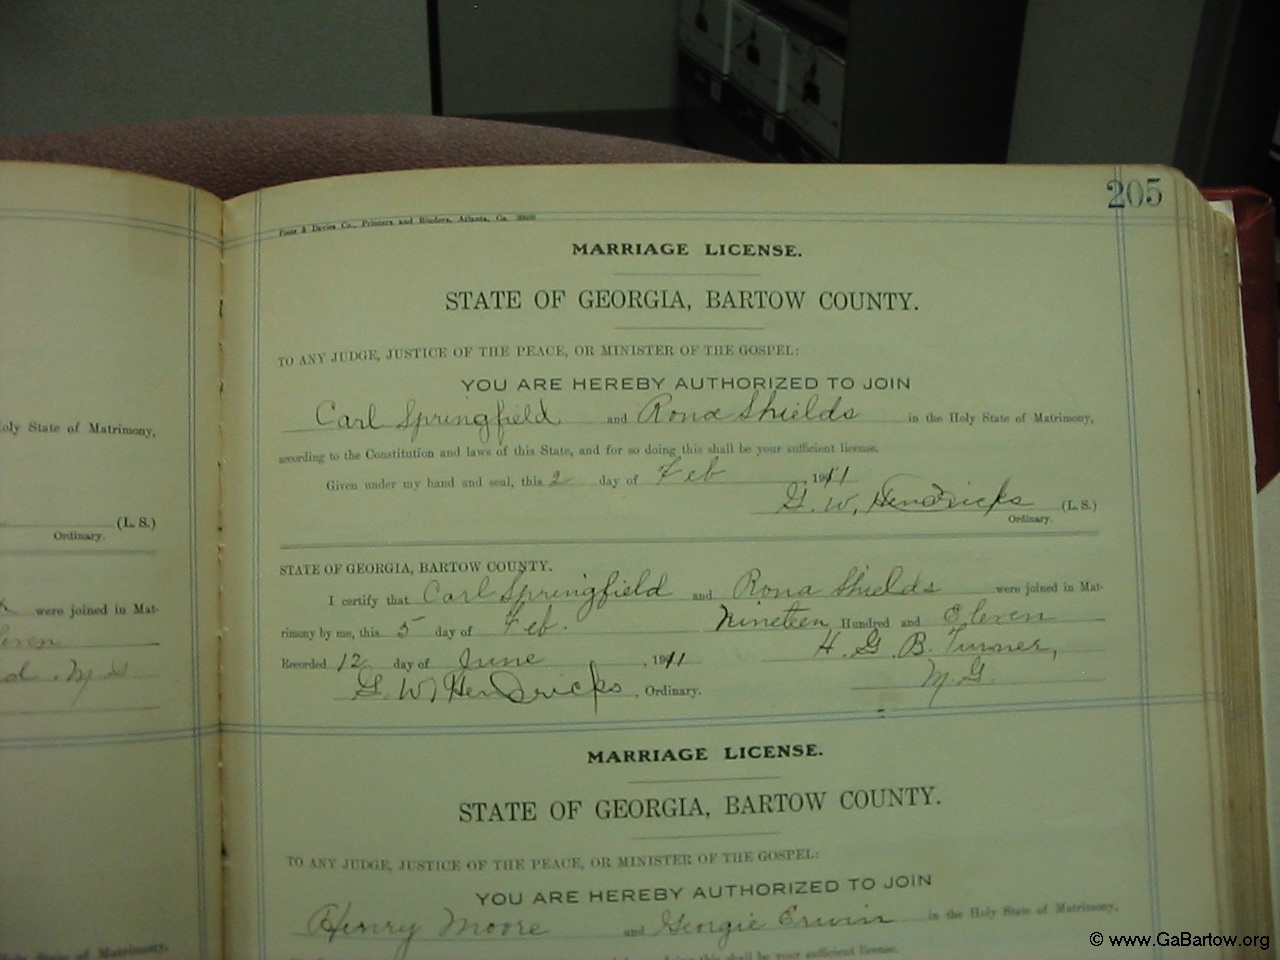 205
Foote & Davies Co., Printers and Binders, Atlanta, Ga.
MARRIAGE LICENSE.
STATE OF GEORGIA, BARTOW COUNTY.
TO ANY JUDGE, JUSTICE OF THE PEACE, OR MINISTER OF THE GOSPEL:
YOU ARE HEREBY AUTHORIZED TO JOIN
Carl Springfield and Rona Shields in the Holy State of Matrimony,
according to the Constitution and laws of this State, and for so doing this shall be your sufficient license.
Given under my hand and seal, this 2 day of Feb , 1911
G. W. Hendricks (L. S.)
Ordinary.
STATE OF GEORGIA, BARTOW COUNTY.
I certify that Carl Springfield and Rona Shields were joined in Mat-
rimony by me, this 5 day of Feb. Nineteen Hundred and Eleven
Recorded 12 day of June , 1911 H. G. B. Turner,
G. W. Hendricks , Ordinary. M. G.
MARRIAGE LICENSE.
STATE OF GEORGIA, BARTOW COUNTY.
TO ANY JUDGE, JUSTICE OF THE PEACE, OR MINISTER OF THE GOSPEL:
YOU ARE HEREBY AUTHORIZED TO JOIN
Henry Moore and Georgie Erwin in the Holy State of Matrimony,
doing this shall be your sufficient license.
oly State of Matrimony,
(L. S.)
Ordinary.
were joined in Mat-
M G
State of Matrimony,
© www.GaBartow.org